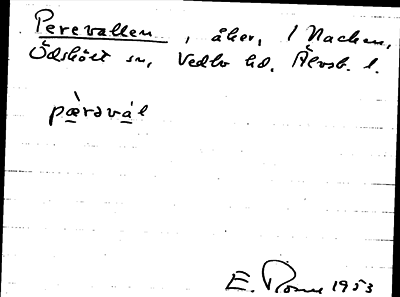 Perevallen, åker, / Nacken,
Ödskölt sn, Vedbo hd, Älvsb. l.
pæ̀ravál
E. 1953